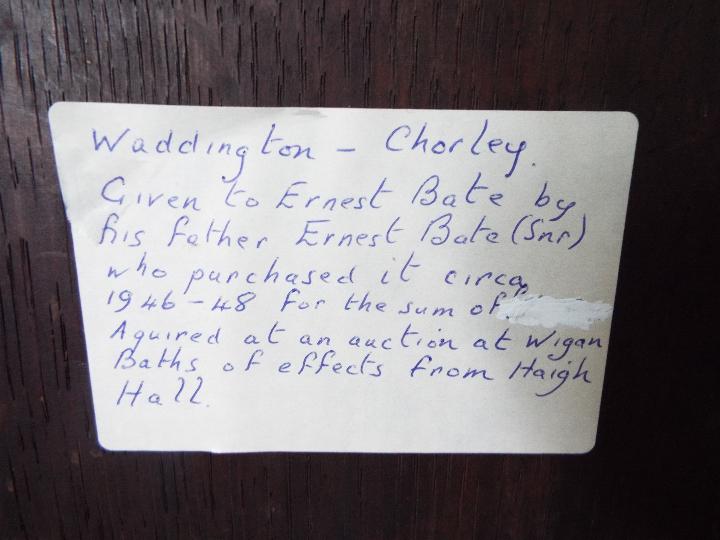 Waddington - Chorley.
Given to Ernest Bate by
his father Ernest Bate (Snr)
who purchased it circa
1946-48 for the sum of
Aquired at an auction at Wigan
Baths of effects from Haigh
Hall.